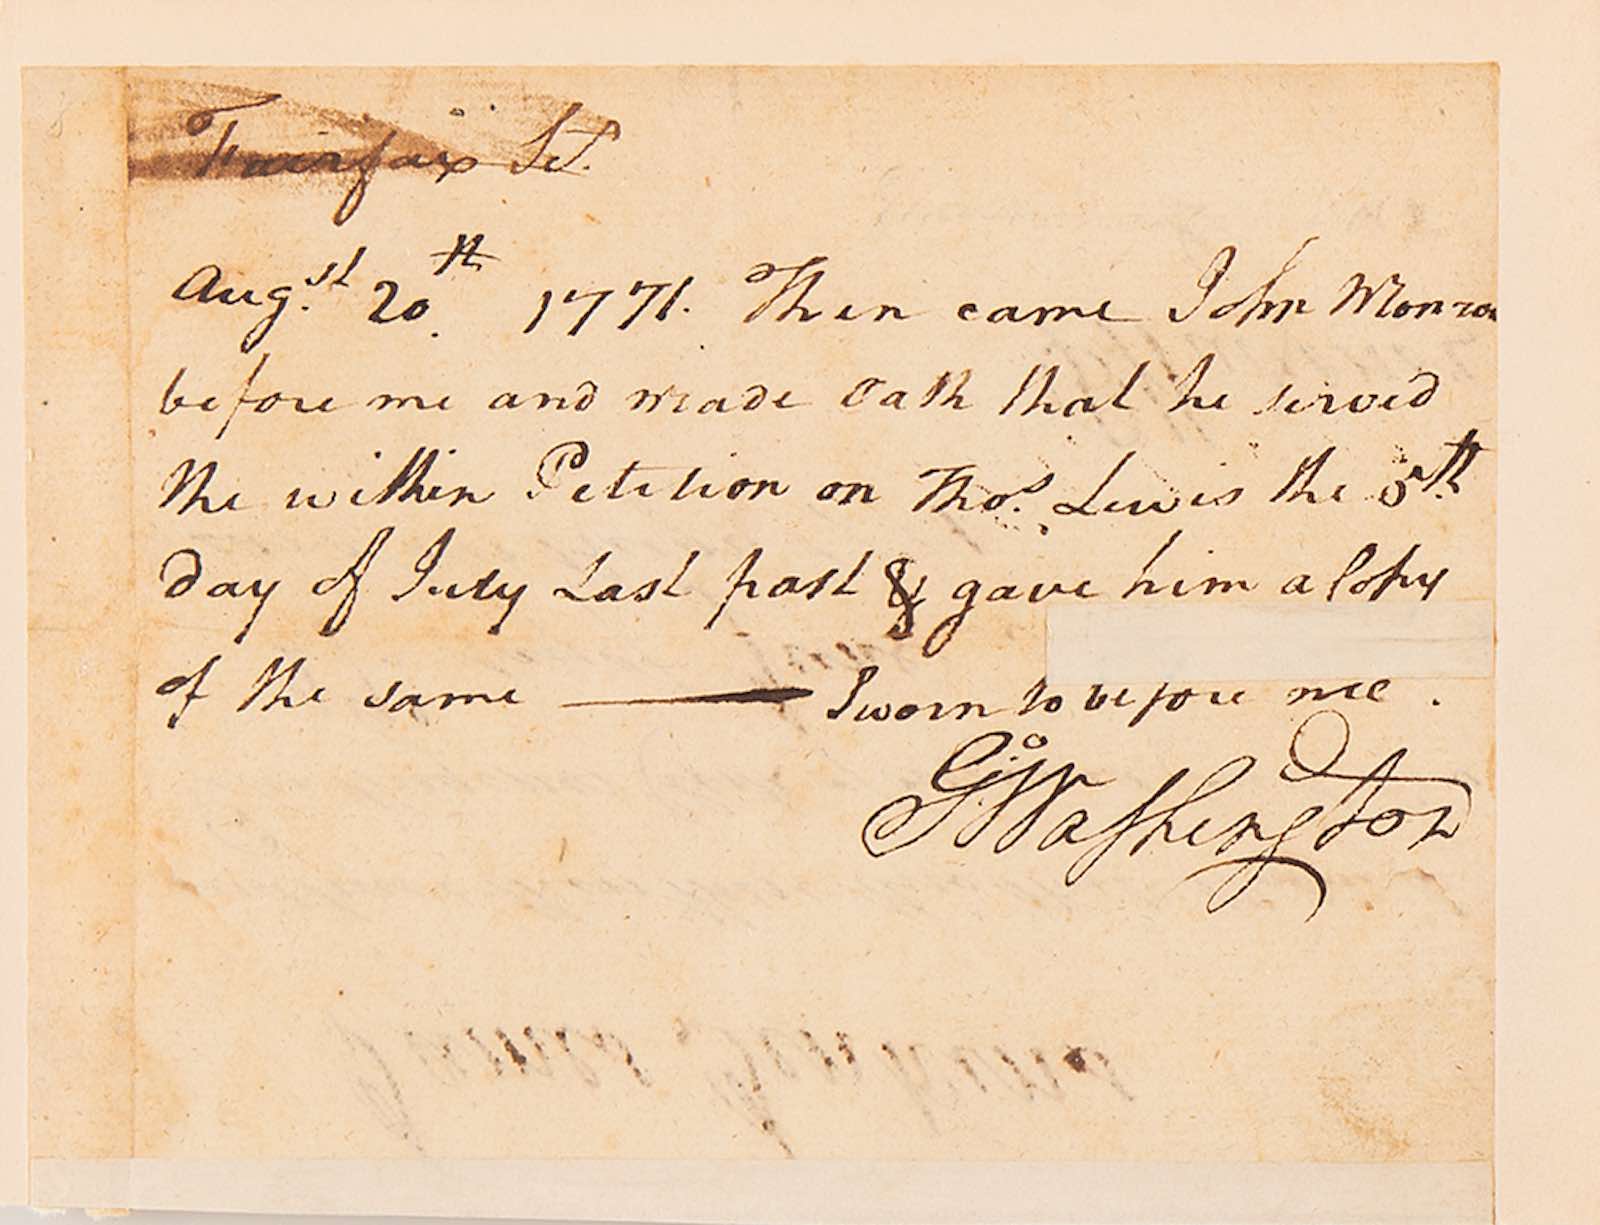 Fairfax Sct.
Augst. 20th. 1771. Then came John Monroe
before me and made Oath that he served
the within Petition on Thos. Lewis the 5th
day of July Last past & gave him a Copy
of the same — Sworn to before me.
Go: Washington